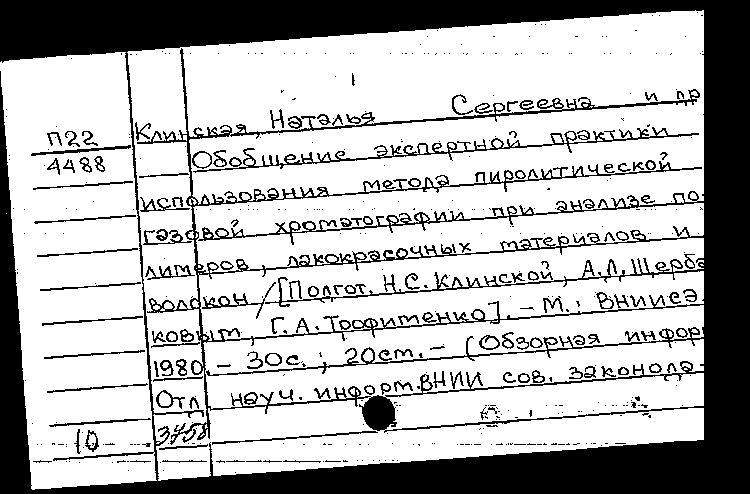 П22 Клинская, Наталья Сергеевна и др
4488 Обобщение экспертной практики
использования метода пиролитической
газовой хроматографии при анализе по-
лимеров, лакокрасочных материалов и
волокон / [Подгот. Н.С. Клинской, А.Л. Щерба
ковым, Г.А. Трофименко]. - М.: ВНИИСЭ.
1980. - 30с.; 20см. - (Обзорная информ
Отд. науч. информ. ВНИИ сов. законода-
10 3458